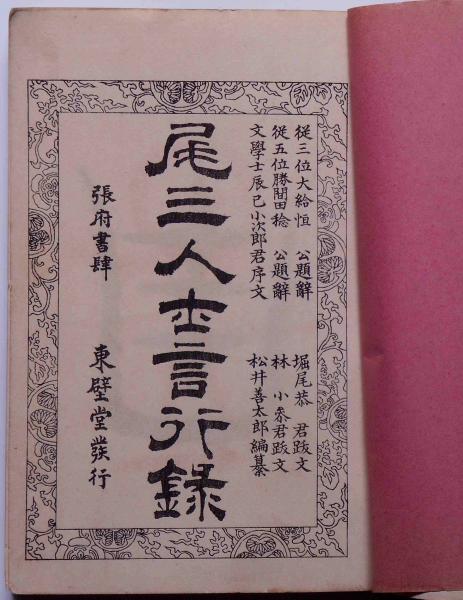 従三位大給恒 公題辭 堀尾恭 君跋文
従五位勝間田稔 公題辭 林 小参君跋文
文學士辰巳小次郎君序文 松井善太郎編纂
尾三人士言行録
張府書肆 東壁堂發行